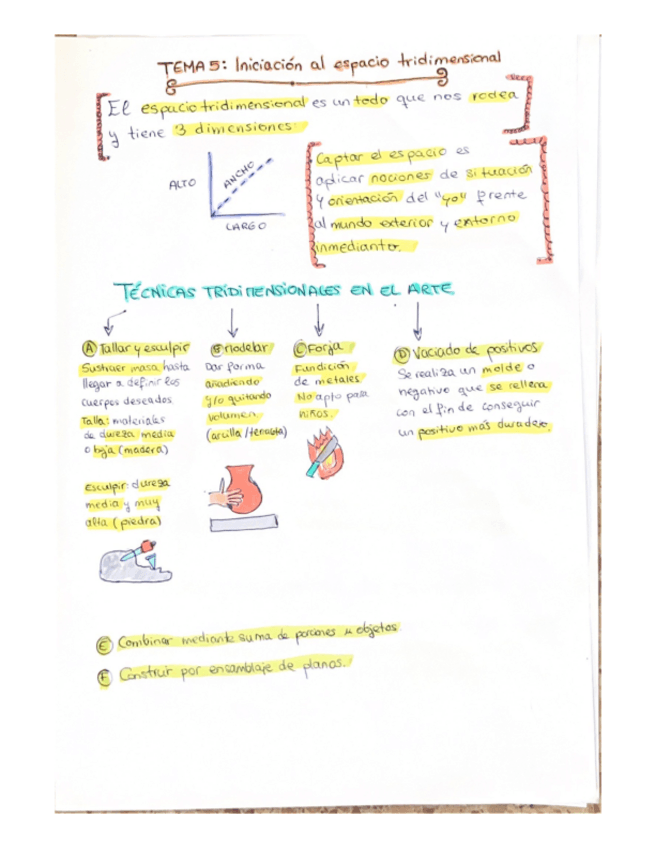 TEMA 5: Iniciación al espacio tridimensional
El espacio tridimensional es un todo que nos rodea
y tiene 3 dimensiones:
ALTO
ANCHO
LARGO
Captar el espacio es
aplicar nociones de situación
y orientación del "yo" frente
al mundo exterior y entorno
inmedianto.
TÉCNICAS TRIDIMENSIONALES EN EL ARTE
A Tallar y esculpir
Sustraer masa hasta
llegar a definir los
cuerpos deseados
Talla: materiales
de dureza media
o baja (madera)
Esculpir: dureza
media y muy
alta (piedra)
B Modelar
Dar forma
añadiendo
y/o quitando
volumen
(arcilla /
C Forja
Fundición
de metales
No apto para
niños.
D Vaciado de positivos
Se realiza un molde o
negativo que se rellena
con el fin de conseguir
un positivo más duradero.
E Combinar mediante suma de porciones u objetos.
F Construir por ensamblaje de planos.